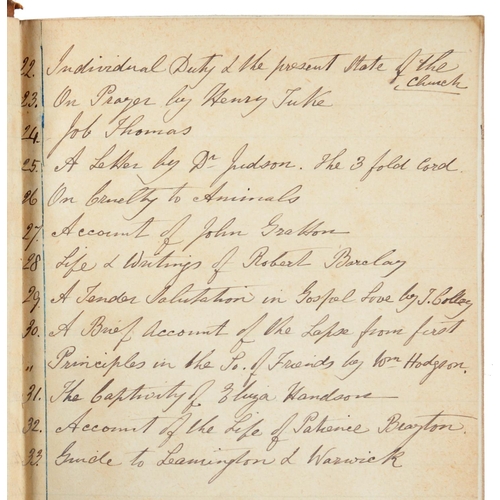 22. Individual Duty & the present State of the
Church
23. On Prayer by Henry Tuke
24. Job Thomas
25. A Letter by Dr Judson. The 3 fold Cord.
26 On Cruelty to Animals
27. Account of John Gratton
28 Life & Writings of Robert Barclay
29. A Tender Salutation in Gospel Love by J. Colley
30. A Brief Account of the Lapse from first
" Principles in the So. of Friends by Wm Hodgson.
31. The Captivity of Eliza Handson
32. Account of the Life of Patience Brayton.
33. Guide to Leamington & Warwick